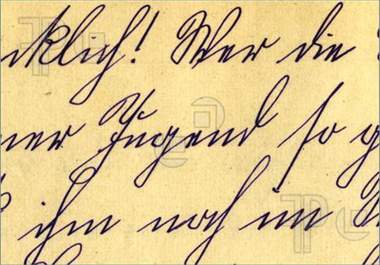 cklich! Wer die
ner Jugend so g
ihm noch im